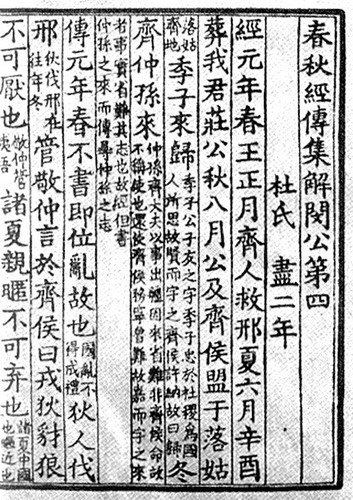 春秋經傳集解閔公第四
杜氏 盡二年
經元年春王正月齊人救邢夏六月辛酉
葬我君莊公秋八月公及齊侯盟于落姑
落姑齊地季子來歸季子公子友之字季子忠於社稷為國人所思故賢而字之齊侯許納故曰歸冬
齊仲孫來仲孫齊大夫以事出疆因來省難非齊侯命故不稱使也還使齊侯務寧魯難故嘉而字之來
者事實省難其志也故經但書仲孫之來而傳尋仲孫之志
傳元年春不書即位亂故也國亂不得成禮狄人伐
邢狄伐邢在往年冬管敬仲言於齊侯曰戎狄豺狼
不可厭也敬仲管夷吾諸夏親暱不可弃也諸夏中國也暱近也